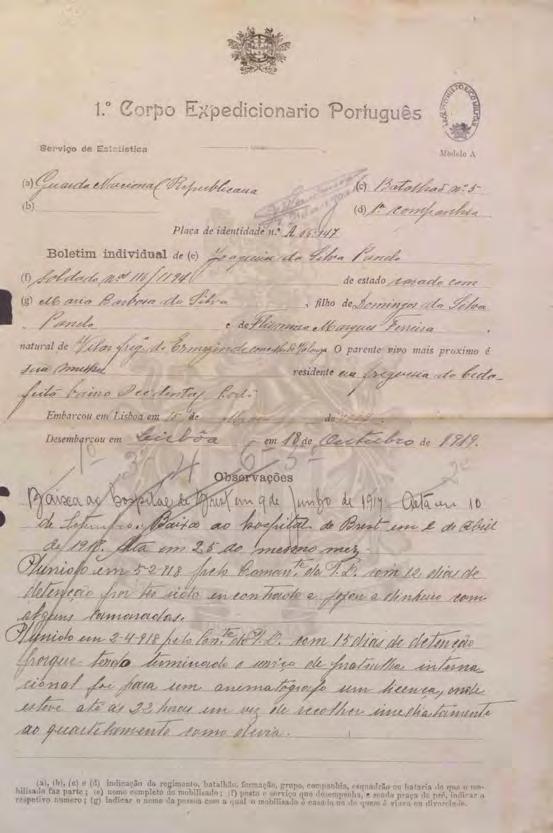 1.º Corpo Expedicionario Português
Serviço de Estatística
Modelo A
(a) Guarda Nacional Republicana (c) Batalhão nº 5
(b) (d) 1ª companhia
Placa de identidade n.º A
Boletim individual de (e) Joaquim da Silva Pando
(f) Soldado nº 116/1194 de estado casado com
(g) Maria Barbosa da Silva, filho de Domingos da Silva
Pando e de Marques Ferreira,
natural de O parente vivo mais proximo é
sua mulher residente na freguesia de
feita bairro Occidental
Embarcou em Lisboa em 15 de de
Desembarcou em Lisbôa em 18 de Outubro de 1919.
Observações
Baixa ao hospital de Brest em 9 de Junho de 1917. Alta em 10
de Setembro. Baixa ao hospital de Brest em 2 de Abril
de 1918. Alta em 25 do mesmo mez.
Punido em 5-2-918 pelo Comante do com 12 dias de
detenção por ter sido encontrado a jogar a dinheiro com
alguns camaradas.
Punido em 2-4-918 pelo com 15 dias de detenção
porque tendo terminado o serviço de patrulha interna
cional foi para um animatografo sem licença, onde
esteve até ás 22 horas em vez de recolher imediatamente
ao quartelamento como devia.
(a), (b), (c) e (d) indicação do regimento, batalhão, formação, grupo, companhia, esquadrão ou bataria de que o mo-
bilisado faz parte; (e) nome completo do mobilisado; (f) posto e serviço que desempenha, e sendo praça de pré, indicar o
respetivo numero; (g) Indicar o nome da pessoa com a qual o mobilisado é casado ou de quem é viuvo ou divorciado.